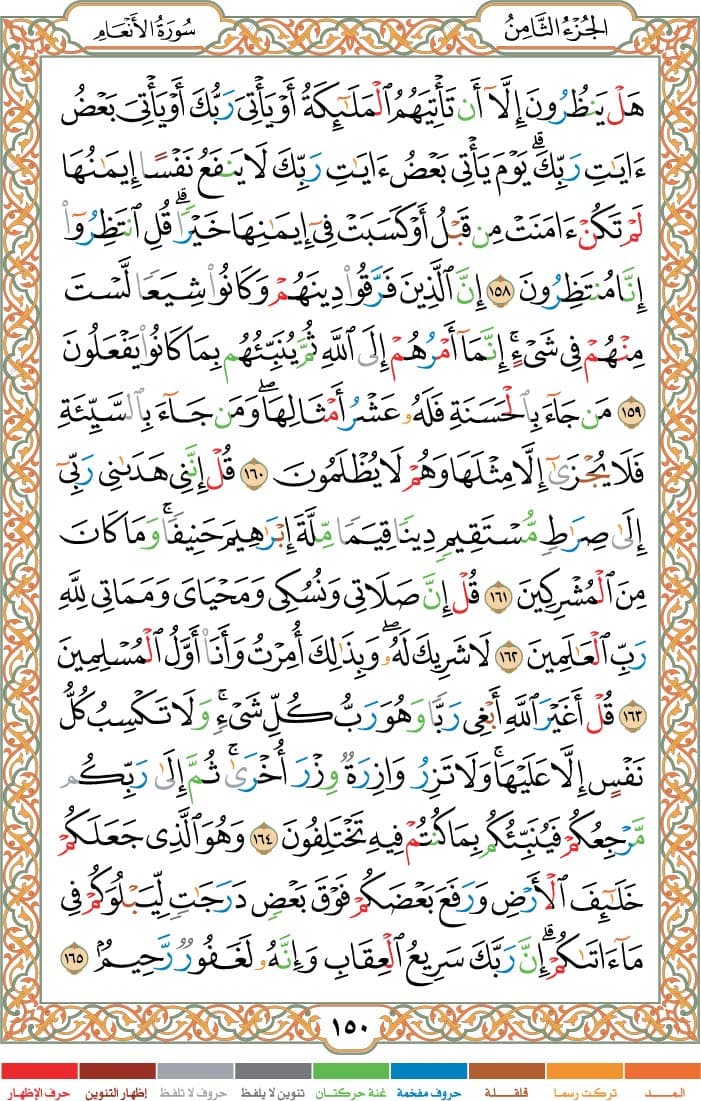 الجُزْءُ الثَّامِنُ
سُورَةُ الأَنْعَامِ
هَلْ يَنظُرُونَ إِلَّآ أَن تَأْتِيَهُمُ ٱلْمَلَٰٓئِكَةُ أَوْ يَأْتِىَ رَبُّكَ أَوْ يَأْتِىَ بَعْضُ
ءَايَٰتِ رَبِّكَ ۗ يَوْمَ يَأْتِى بَعْضُ ءَايَٰتِ رَبِّكَ لَا يَنفَعُ نَفْسًا إِيمَٰنُهَا
لَمْ تَكُنْ ءَامَنَتْ مِن قَبْلُ أَوْ كَسَبَتْ فِىٓ إِيمَٰنِهَا خَيْرًا ۗ قُلِ ٱنتَظِرُوٓا۟
إِنَّا مُنتَظِرُونَ ١٥٨ إِنَّ ٱلَّذِينَ فَرَّقُوا۟ دِينَهُمْ وَكَانُوا۟ شِيَعًا لَّسْتَ
مِنْهُمْ فِى شَىْءٍ ۚ إِنَّمَآ أَمْرُهُمْ إِلَى ٱللَّهِ ثُمَّ يُنَبِّئُهُم بِمَا كَانُوا۟ يَفْعَلُونَ
١٥٩ مَن جَآءَ بِٱلْحَسَنَةِ فَلَهُۥ عَشْرُ أَمْثَالِهَا ۖ وَمَن جَآءَ بِٱلسَّيِّئَةِ
فَلَا يُجْزَىٰٓ إِلَّا مِثْلَهَا وَهُمْ لَا يُظْلَمُونَ ١٦٠ قُلْ إِنَّنِى هَدَىٰنِى رَبِّىٓ
إِلَىٰ صِرَٰطٍ مُّسْتَقِيمٍ دِينًا قِيَمًا مِّلَّةَ إِبْرَٰهِيمَ حَنِيفًا ۚ وَمَا كَانَ
مِنَ ٱلْمُشْرِكِينَ ١٦١ قُلْ إِنَّ صَلَاتِى وَنُسُكِى وَمَحْيَاىَ وَمَمَاتِى لِلَّهِ
رَبِّ ٱلْعَٰلَمِينَ ١٦٢ لَا شَرِيكَ لَهُۥ ۖ وَبِذَٰلِكَ أُمِرْتُ وَأَنَا۠ أَوَّلُ ٱلْمُسْلِمِينَ
١٦٣ قُلْ أَغَيْرَ ٱللَّهِ أَبْغِى رَبًّا وَهُوَ رَبُّ كُلِّ شَىْءٍ ۚ وَلَا تَكْسِبُ كُلُّ
نَفْسٍ إِلَّا عَلَيْهَا ۚ وَلَا تَزِرُ وَازِرَةٌ وِزْرَ أُخْرَىٰ ۚ ثُمَّ إِلَىٰ رَبِّكُم
مَّرْجِعُكُمْ فَيُنَبِّئُكُم بِمَا كُنتُمْ فِيهِ تَخْتَلِفُونَ ١٦٤ وَهُوَ ٱلَّذِى جَعَلَكُمْ
خَلَٰٓئِفَ ٱلْأَرْضِ وَرَفَعَ بَعْضَكُمْ فَوْقَ بَعْضٍ دَرَجَٰتٍ لِّيَبْلُوَكُمْ فِى
مَآ ءَاتَىٰكُمْ ۗ إِنَّ رَبَّكَ سَرِيعُ ٱلْعِقَابِ وَإِنَّهُۥ لَغَفُورٌ رَّحِيمٌۢ ١٦٥
١٥٠
المــد تركت رسما قلقـلة حروف مفخمة غنة حركتان تنوين لا يلفظ حروف لا تلفظ إظهار التنوين حرف الإظهار